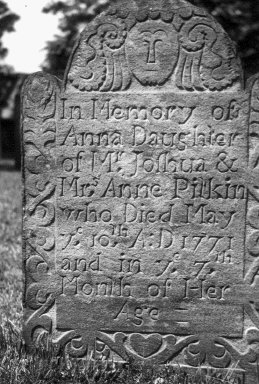 In Memory of
Anna Daughter
of Mr. Joſhua &
Mrs. Anne Pitkin
who Died May
ye. 10th. A:D 1771
and in ye. 7th
Month of Her
Age